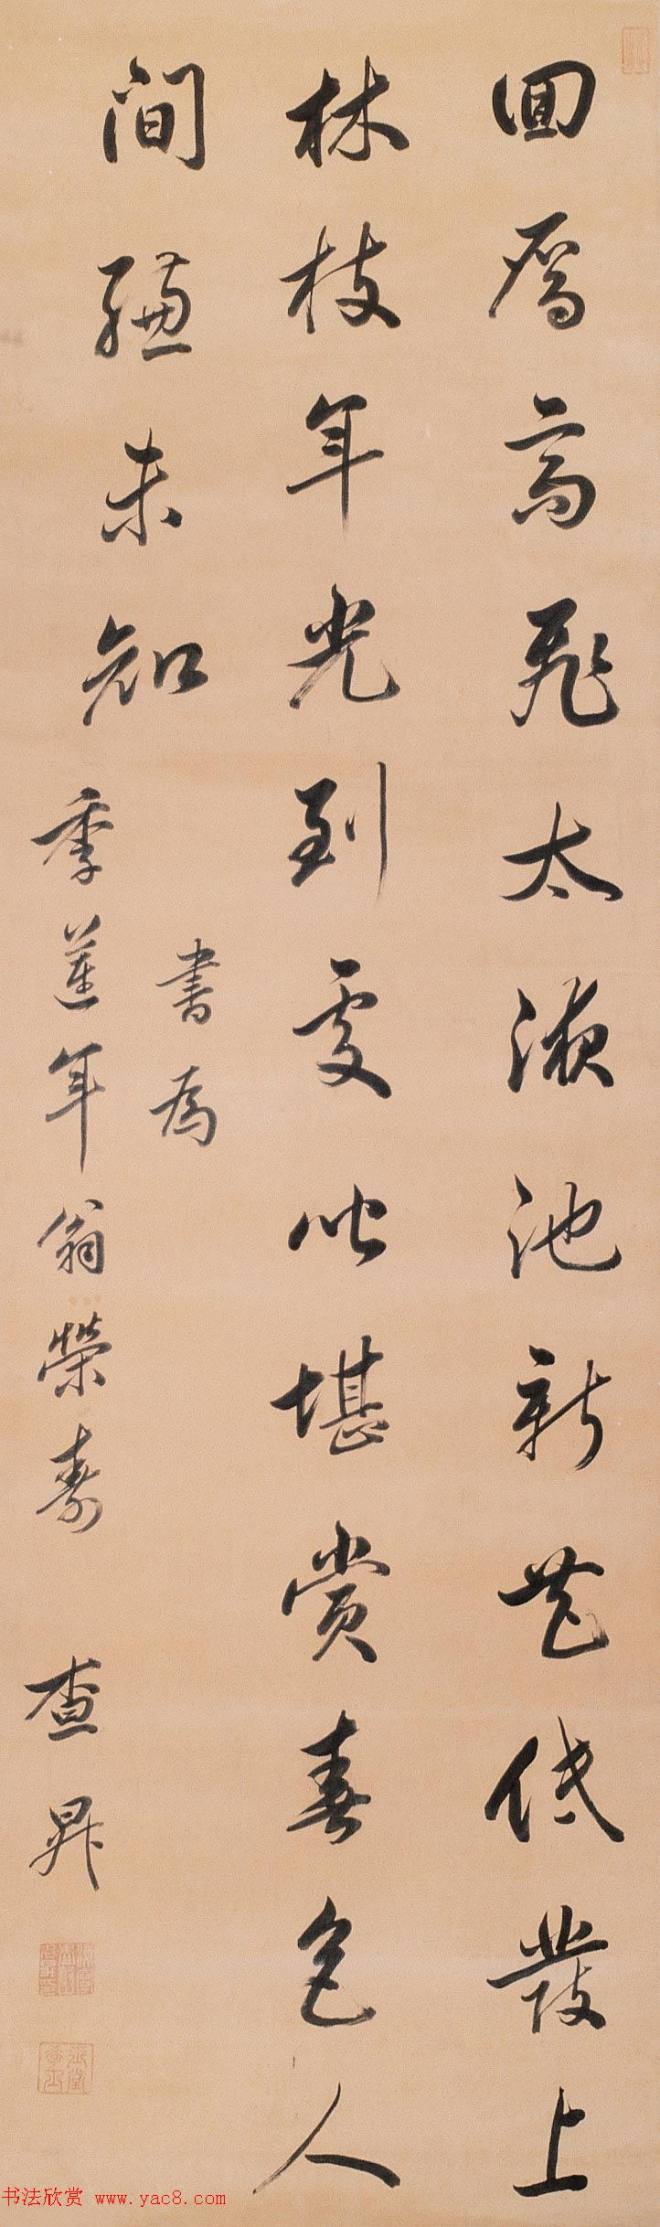 回雁高飛太液池新花低發上
林枝年光到處皆堪賞春色人
間總未知
書為
季蓮年翁榮壽 查昇
书法欣赏 www.yac8.com